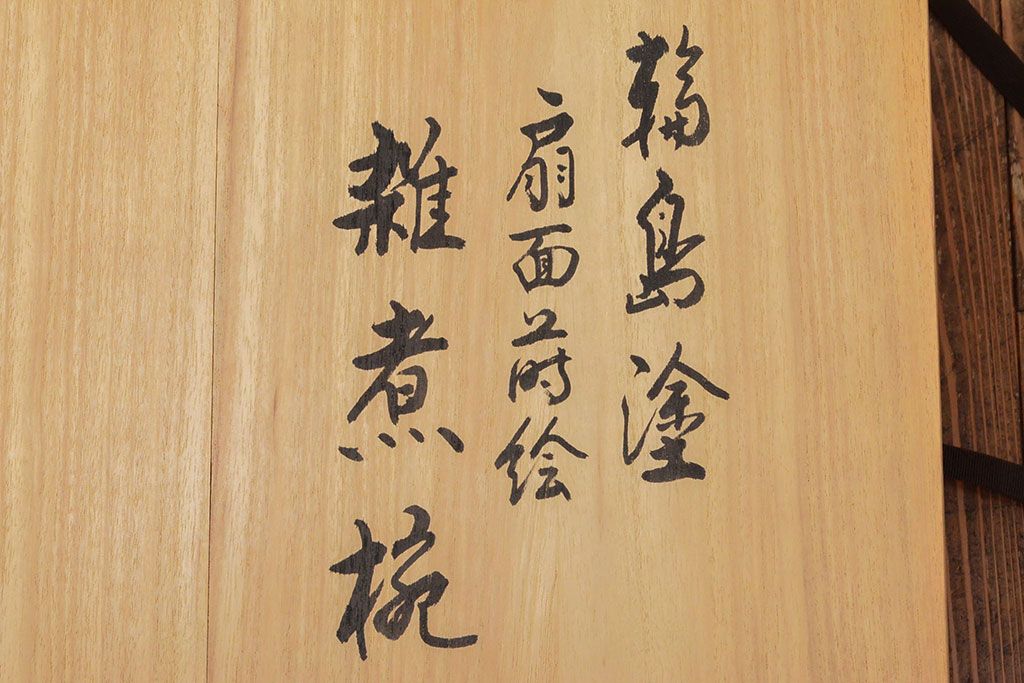 輪島塗
扇面蒔絵
雑煮椀